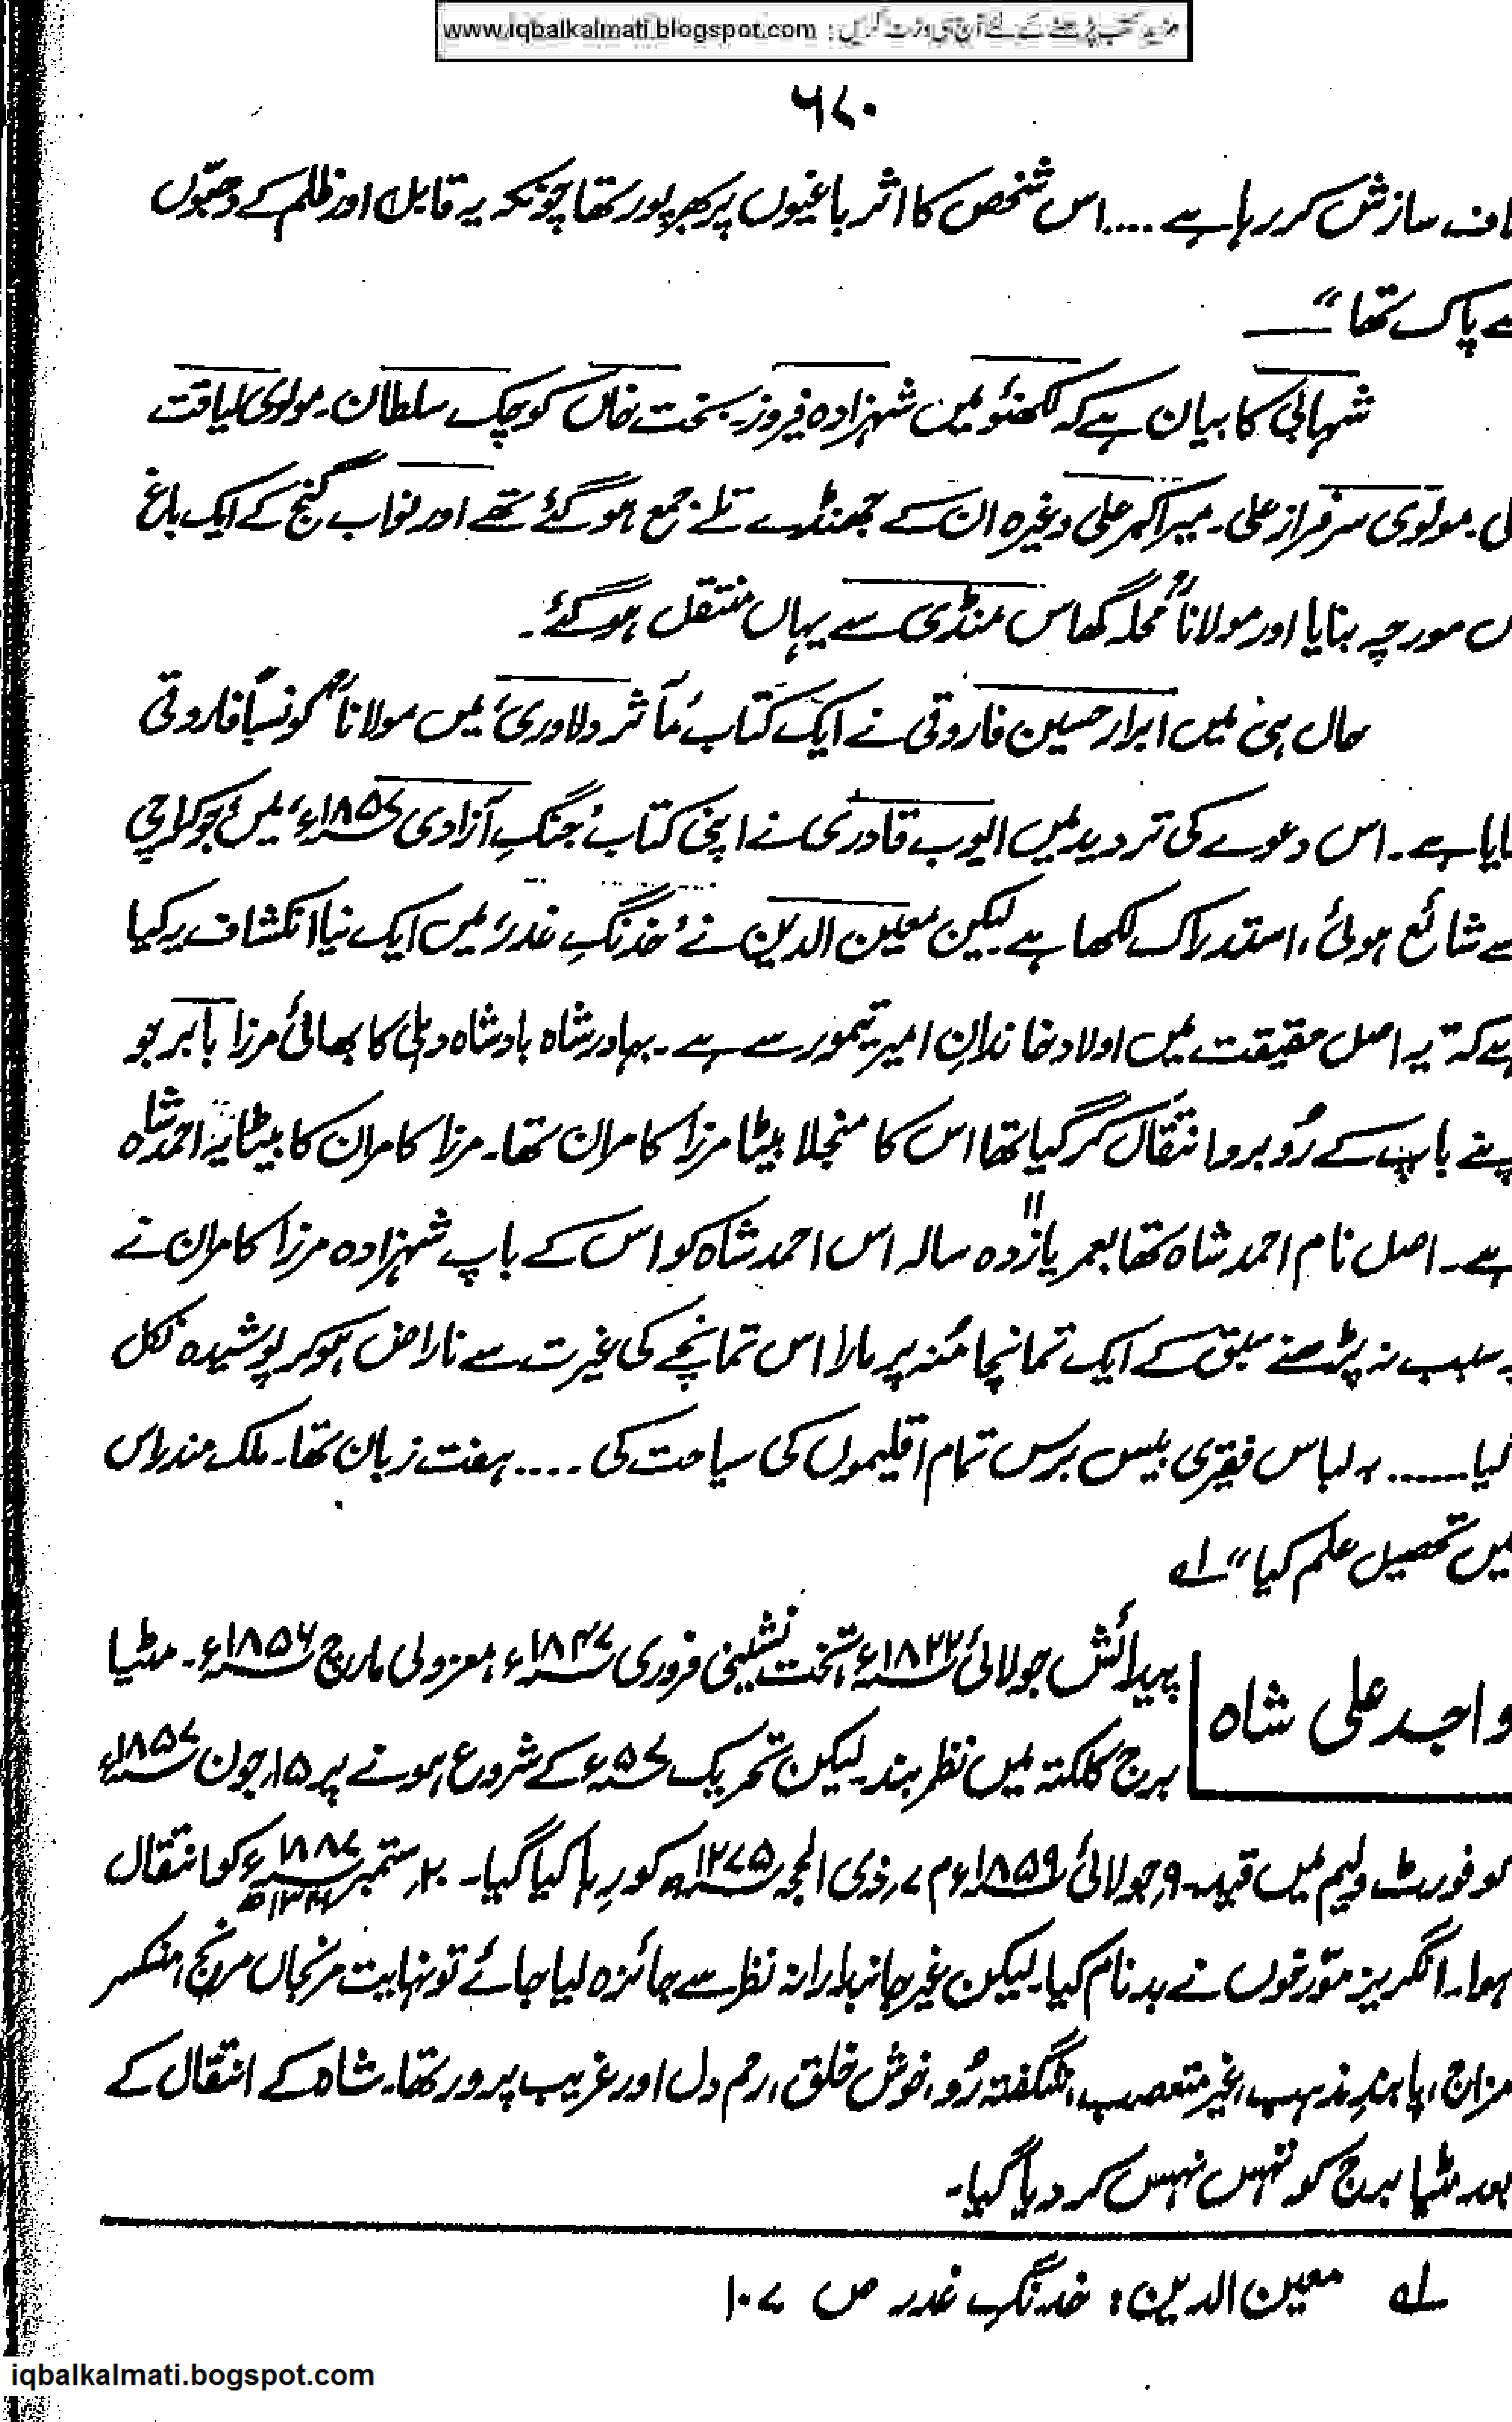 www.iqbalkalmati.blogspot.com : مزید کتب پڑھنے کے لئے آج ہی وزٹ کریں
۶۷۰
سازش کر رہا ہے .... اس شخص کا اثر باغیوں پر بھرپور تھا چونکہ یہ قابل اور ظلم کے دھبّوں
پاک تھا“
شہابی کا بیان ہے کہ لکھنؤ میں شہزادہ فیروز۔ بخت خاں کوچک سلطان۔ مولوی لیاقت
مولوی سرفراز علی۔ میر اکبر علی وغیرہ ان کے جھنڈے تلے جمع ہو گئے تھے اور نواب گنج کے ایک باغ
مورچہ بنایا اور مولاناؒ محلہ گھاس منڈی سے یہاں منتقل ہو گئے۔
حال ہی میں ابرار حسین فاروقی نے ایک کتاب ’مآثر دلاوری‘ میں مولاناؒ کو نسباً فاروقی
ہے۔ اس دعوے کی تردید میں ایوب قادری نے اپنی کتاب ’جنگِ آزادی ۱۸۵۷ء‘ میں جو کراچی
شائع ہوئی، استدراک لکھا ہے لیکن معین الدین نے ’خدنگِ غدر‘ میں ایک نیا انکشاف یہ کیا
ہے کہ ”یہ اصل حقیقت میں اولاد خاندانِ امیر تیمور سے ہے۔ بہادر شاہ بادشاہ دہلی کا بھائی مرزا بابر بو
باپ کے رُوبرو انتقال کر گیا تھا اس کا منجلا بیٹا مرزا کامران تھا۔ مرزا کامران کا بیٹا یہ احمد شاہ
ہے۔ اصل نام احمد شاہ تھا بعمر یازدہ ۱۱ سالہ اس احمد شاہ کو اس کے باپ شہزادہ مرزا کامران نے
سبب نہ پڑھنے سبق کے ایک تمانچا مُنہ پر مارا اس تمانچے کی غیرت سے ناراض ہو کر پوشیدہ نکل
گیا ...... بہ لباس فقیری بیس برس تمام اقلیموں کی سیاحت کی .... ہفت زبان تھا۔ ملک مندراس
میں تحصیل علم کیا“ لہ
واجد علی شاہ
پیدائش جولائی ۱۸۲۲ء، تخت نشینی فروری ۱۸۴۷ء، معزولی مارچ ۱۸۵۶ء۔ مٹیا
برج کلکتہ میں نظر بند۔ لیکن تحریک ۵۷ء کے شروع ہونے پر ۱۵؍جون ۱۸۵۷ء
کو فورٹ ولیم میں قید۔ ۹؍جولائی ۱۸۵۹ء م ۷؍ذی الحجہ ۱۲۷۵ھ کو رہا کیا گیا۔ ۲۰؍ستمبر ۱۸۸۷ء کو انتقال
ہوا۔ انگریز مؤرخوں نے بدنام کیا۔ لیکن غیر جانبدارانہ نظر سے جائزہ لیا جائے تو نہایت مرنجاں مرنج، منکسر
مزاج، پابندِ مذہب، غیر متعصب، شگفتہ رُو، خوش خلق، رحم دل اور غریب پرور تھا۔ شاہ کے انتقال کے
بعد مٹیا برج کو تہس نہس کر دیا گیا۔
لہ معین الدین: خدنگِ غدر ص ۱۰۷
iqbalkalmati.bogspot.com